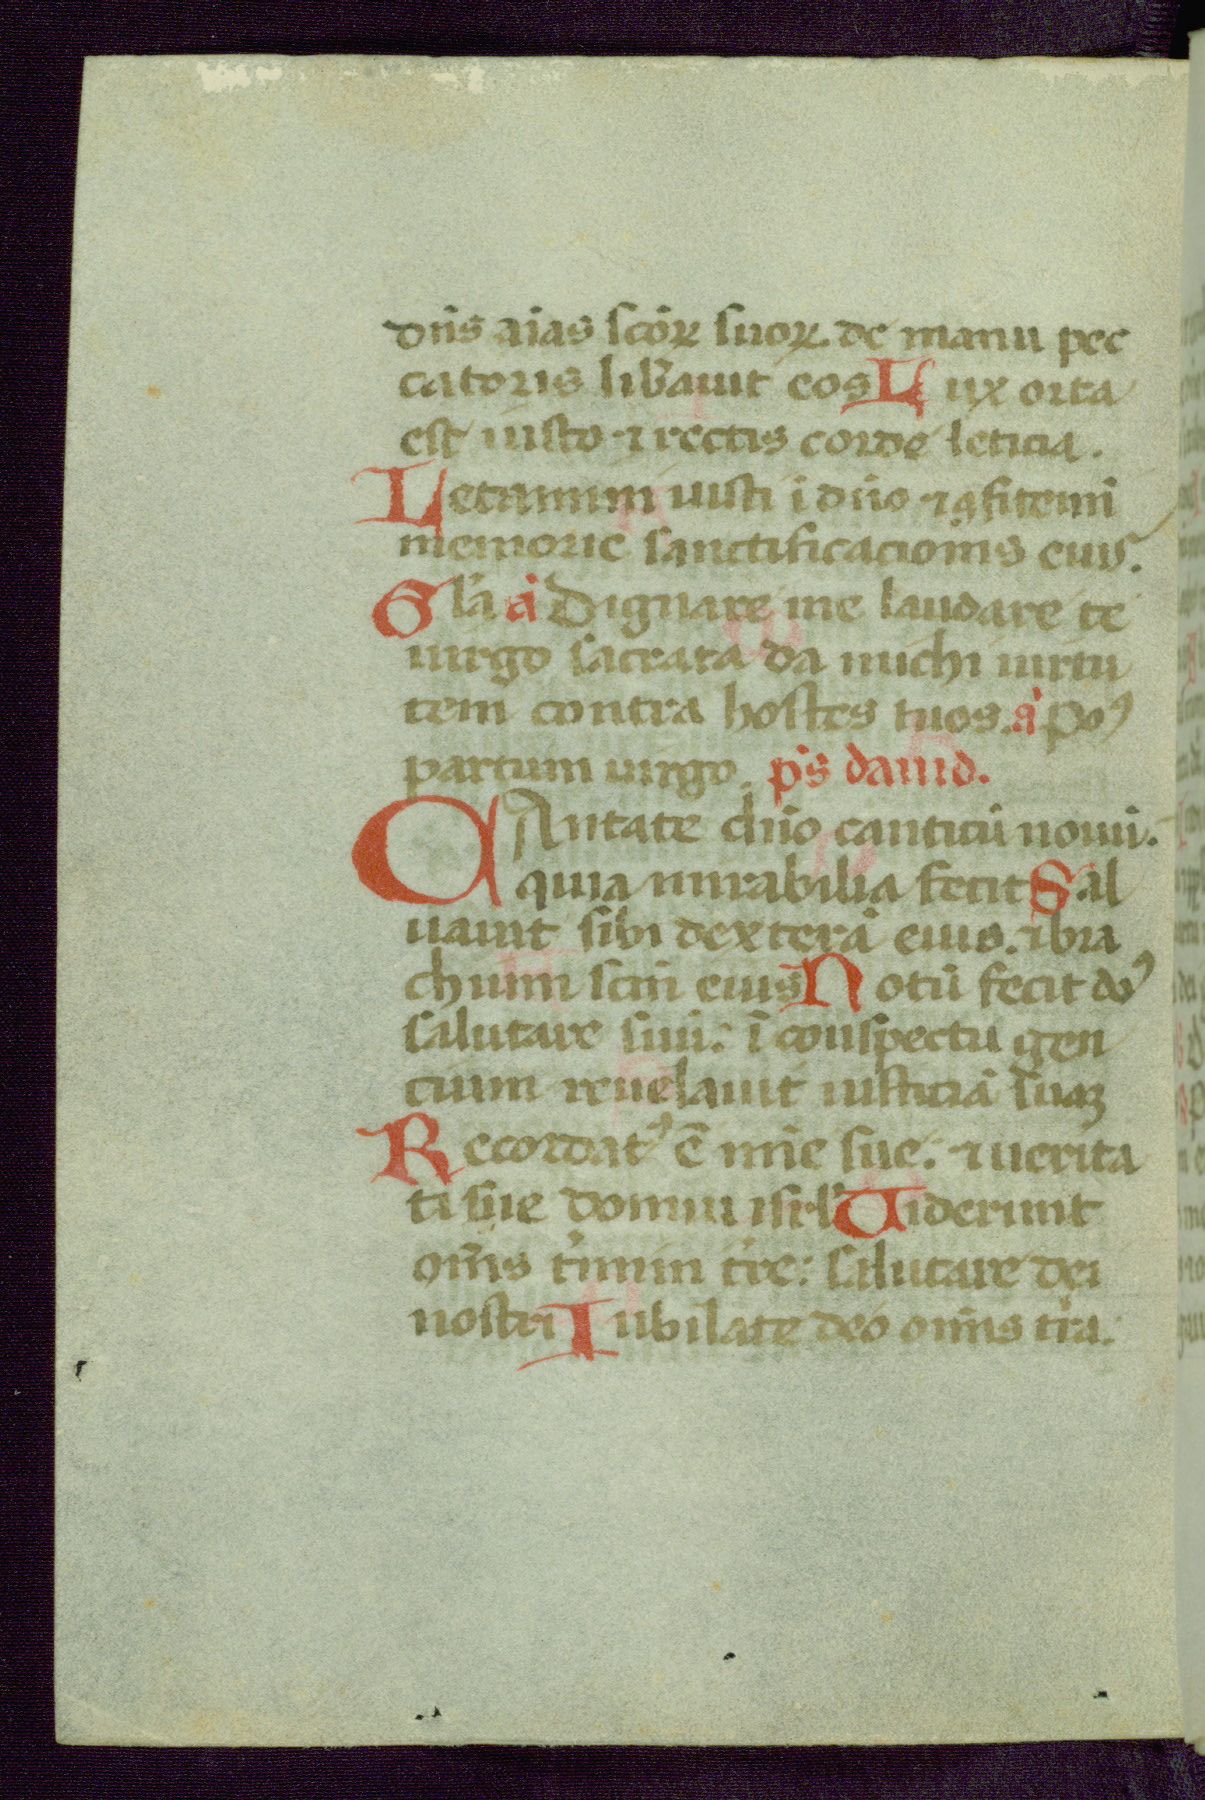 dn̄s aīas scōꝝ suoꝝ. de manu pec
catoris lib̄auit eos Lux orta
est iusto ⁊ rectis corde leticia.
Letamini iusti ī dn̄o ⁊ ꝯfitemī
memorie sanctificacionis eius.
Gl̄a ā Dignare me laudare te
uirgo sacrata da michi uirtu
tem contra hostes tuos. ā Poꝰ
partum uirgo. ps̄ dauid.
CAntate dn̄o canticū nouū.
quia mirabilia fecit Sal
uauit sibi dexterā eius. ⁊ bra
chium scm̄ eius Notū fecit dn̄ꝰ
salutare suū: ī conspectu gen
cium reuelauit iusticiā suaꝫ
Recordatꝰ ē mīe sue. ⁊ uerita
ti sue domui isrl̄ Uiderunt
om̄s t̄mini tr̄e: salutare dei
nostri Iubilate deo omīs tr̄a.